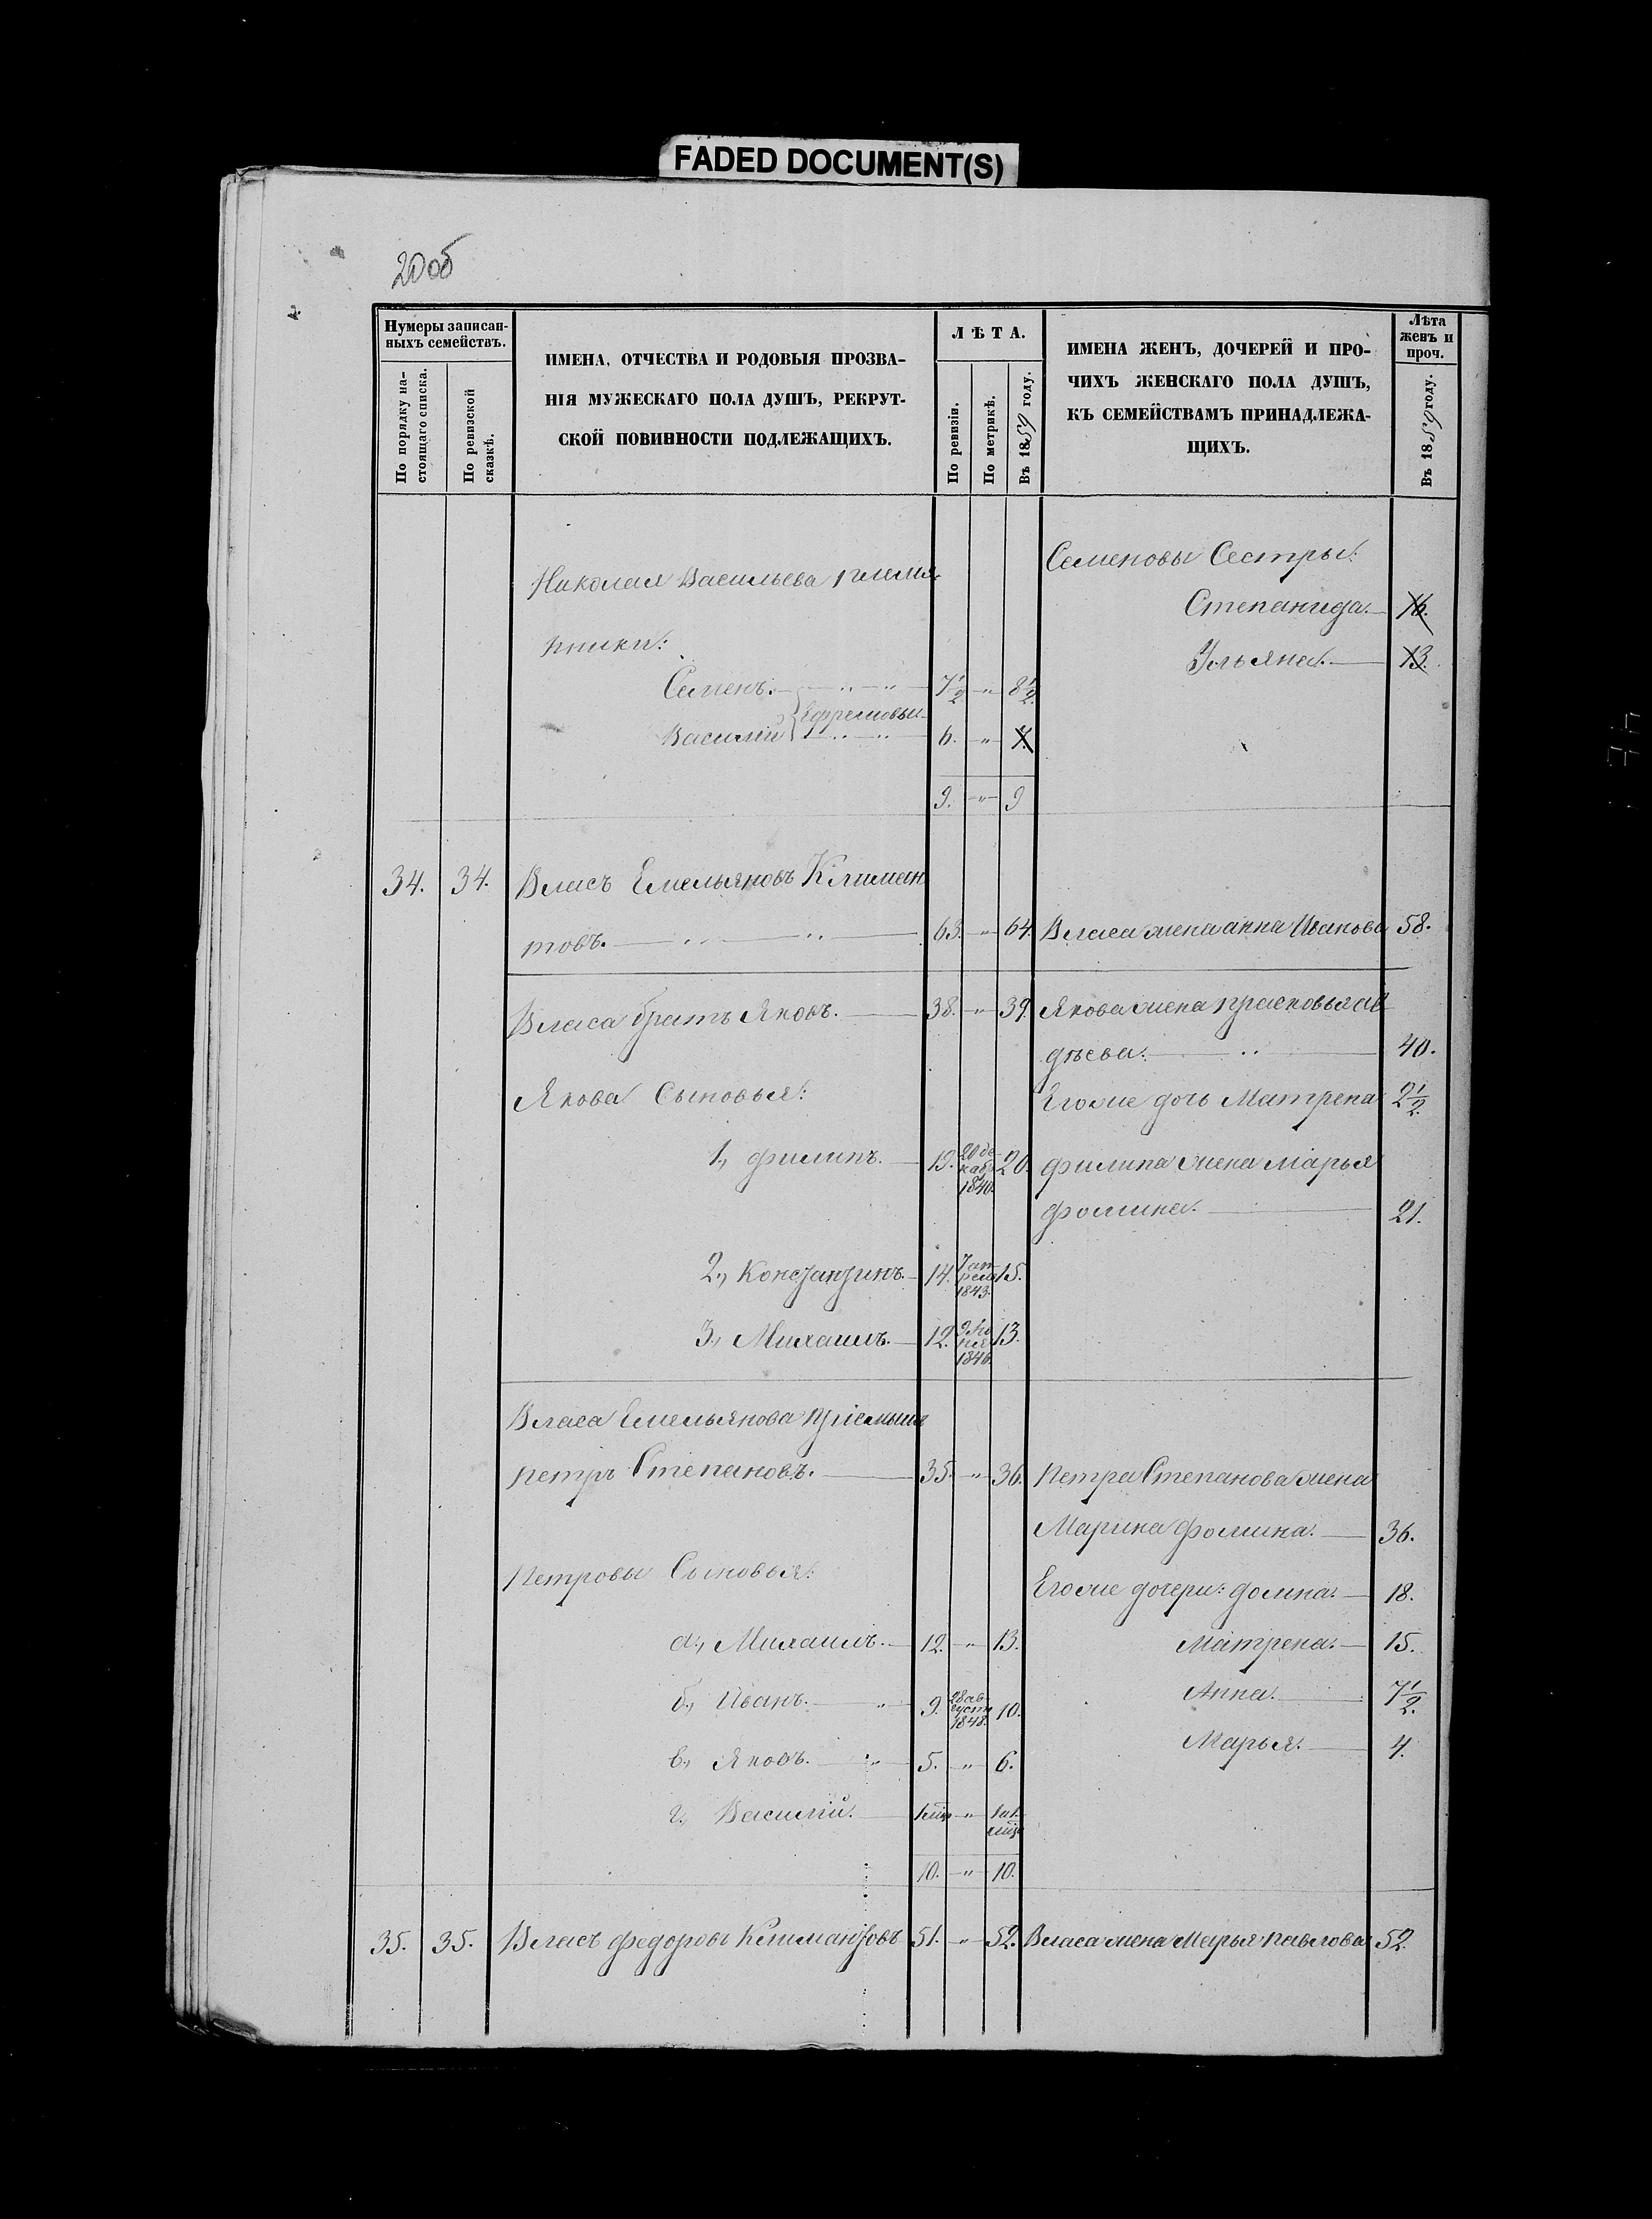 FADED DOCUMENT(S)
20 об
Нумеры записан-
ныхъ семействъ.
По порядку на-
стоящаго списка.
По ревизской
сказкѣ.
ИМЕНА, ОТЧЕСТВА И РОДОВЫЯ ПРОЗВА-
НІЯ МУЖЕСКАГО ПОЛА ДУШЪ, РЕКРУТ-
СКОЙ ПОВИННОСТИ ПОДЛЕЖАЩИХЪ.
ЛѢТА.
По ревизіи.
По метрикѣ.
Въ 1859 году.
ИМЕНА ЖЕНЪ, ДОЧЕРЕЙ И ПРО-
ЧИХЪ ЖЕНСКАГО ПОЛА ДУШЪ,
КЪ СЕМЕЙСТВАМЪ ПРИНАДЛЕЖА-
ЩИХЪ.
Лѣта
женъ и
проч.
Въ 1859 году.
Семеновы Сестры:
Николая Васильева племя-
Степанида. 16.
нники:
Ульяна. 13.
Семенъ. 7½ " 8½.
Ефремовы
Василій 6. " 7.
9. " 9
34. 34. Власъ Емельяновъ Климан
товъ. 63. " 64. Власа жена анна Иванова 58.
Власа братъ Яковъ. 38. " 39. Якова жена прасковья ав
дѣева. 40.
Якова Сыновья: Егоже дочь Матрена 2½.
1., филипъ. 19. 20 де
кабр
1840. 20. филипа жена Марья
фомина. 21.
2., Константинъ. 14. 7 ап
реля
1843. 15.
3., Михаилъ. 12. 1846. 13.
Власа Емельянова пріемыш
петръ Степановъ. 35. " 36. петра Степанова жена
Марина фомина. 36.
Петровы Сыновья: Егоже дочери: домна. 18.
а., Михаилъ. 12. " 13. Матрена. 15.
б., Иванъ. 9. 28 ав
густа
1848. 10. Анна. 7½.
в., Яковъ. 5. " 6. Марья. 4.
г., Василій. "
10. " 10.
35. 35. Власъ федоровъ Климантовъ 51. " 52. Власа жена Марья павлова 52.